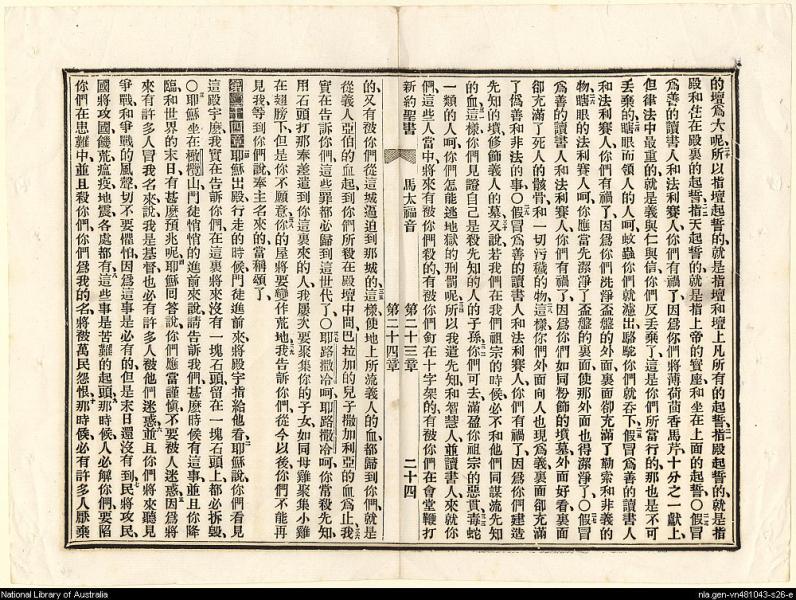 的壇爲大呢所以指壇起誓的就是指壇和壇上凡所有的起誓指殿起誓的就是指
殿和住在殿裏的起誓指天起誓的就是指上帝的寶座和坐在上面的起誓〇假冒
爲善的讀書人和法利賽人你們有禍了因爲你們將薄荷茴香馬芹十分之一獻上
但律法中最重的就是義與仁與信你們反丟棄了這是你們所當行的那也是不可
丟棄的瞎眼而領人的人呵蚊蟲你們就濾出駱駝你們就吞下假冒爲善的讀書人
和法利賽人你們有禍了因爲你們洗淨盃盤的外面裏面卻充滿了勒索和非義的
物瞎眼的法利賽人呵你應當先潔淨了盃盤的裏面使那外面也得潔淨了〇假冒
爲善的讀書人和法利賽人你們有禍了因爲你們如同粉飾的墳墓外面好看裏面
卻充滿了死人的骸骨和一切污穢的物這樣你們外面向人也現爲義裏面卻充滿
了僞善和非法的事〇假冒爲善的讀書人和法利賽人你們有禍了因爲你們建造
先知的墳修飾義人的墓又說若我們在我們祖宗的時候必不和他們同謀流先知
的血這樣你們見證自己是殺先知的人的子孫你們可去滿盈你祖宗的惡貫毒蛇
一類的人呵你們怎能逃地獄的刑罰呢所以我遣先知和智慧人並讀書人來就你
們這些人當中將來有被你們殺的有被你們釘在十字架的有被你們在會堂鞭打
新約聖書 馬太福音 第二十三章 第二十四章 二十四
的又有被你們從這城逼迫到那城的這樣使地上所流義人的血都歸到你們就是
從義人亞伯的血起到你們所殺在殿壇中間巴拉加的兒子撒加利亞的血爲止我
實在告訴你們這些罪都必歸到這世代了〇耶路撒冷呵耶路撒冷呵你常殺先知
用石頭打那奉差遣到你這裏來的人我屢次要聚集你的子女如同母雞聚集小雞
在翅膀下但是你不願意你的屋將要變作荒地我告訴你們從今以後你們不能再
見我等到你們說奉主名來的當稱頌了
第二十四章耶穌出殿行走的時候門徒進前來將殿宇指給他看耶穌說你們看見
這殿宇麼我實在告訴你們在這裏將來沒有一塊石頭留在一塊石頭上都必拆毀
〇耶穌坐在橄欖山門徒悄悄的進前來說請告訴我們甚麼時候有這事並且你降
臨和世界的末日有甚麼預兆呢耶穌回答說你們應當謹慎不要被人迷惑因爲將
來有許多人冒我名來說我是基督也必有許多人被他們迷惑並且你們將來聽見
爭戰和爭戰的風聲切不要懼怕因爲這事是必有的但是末日還沒有到民將攻民
國將攻國饑荒瘟疫地震各處都有這些事是苦難的起頭那時候人必解你們要陷
你們在患難中並且殺你們你們爲我的名將被萬民怨恨那時候必有許多人厭棄
National Library of Australia
nla.gen-vn481043-s26-e